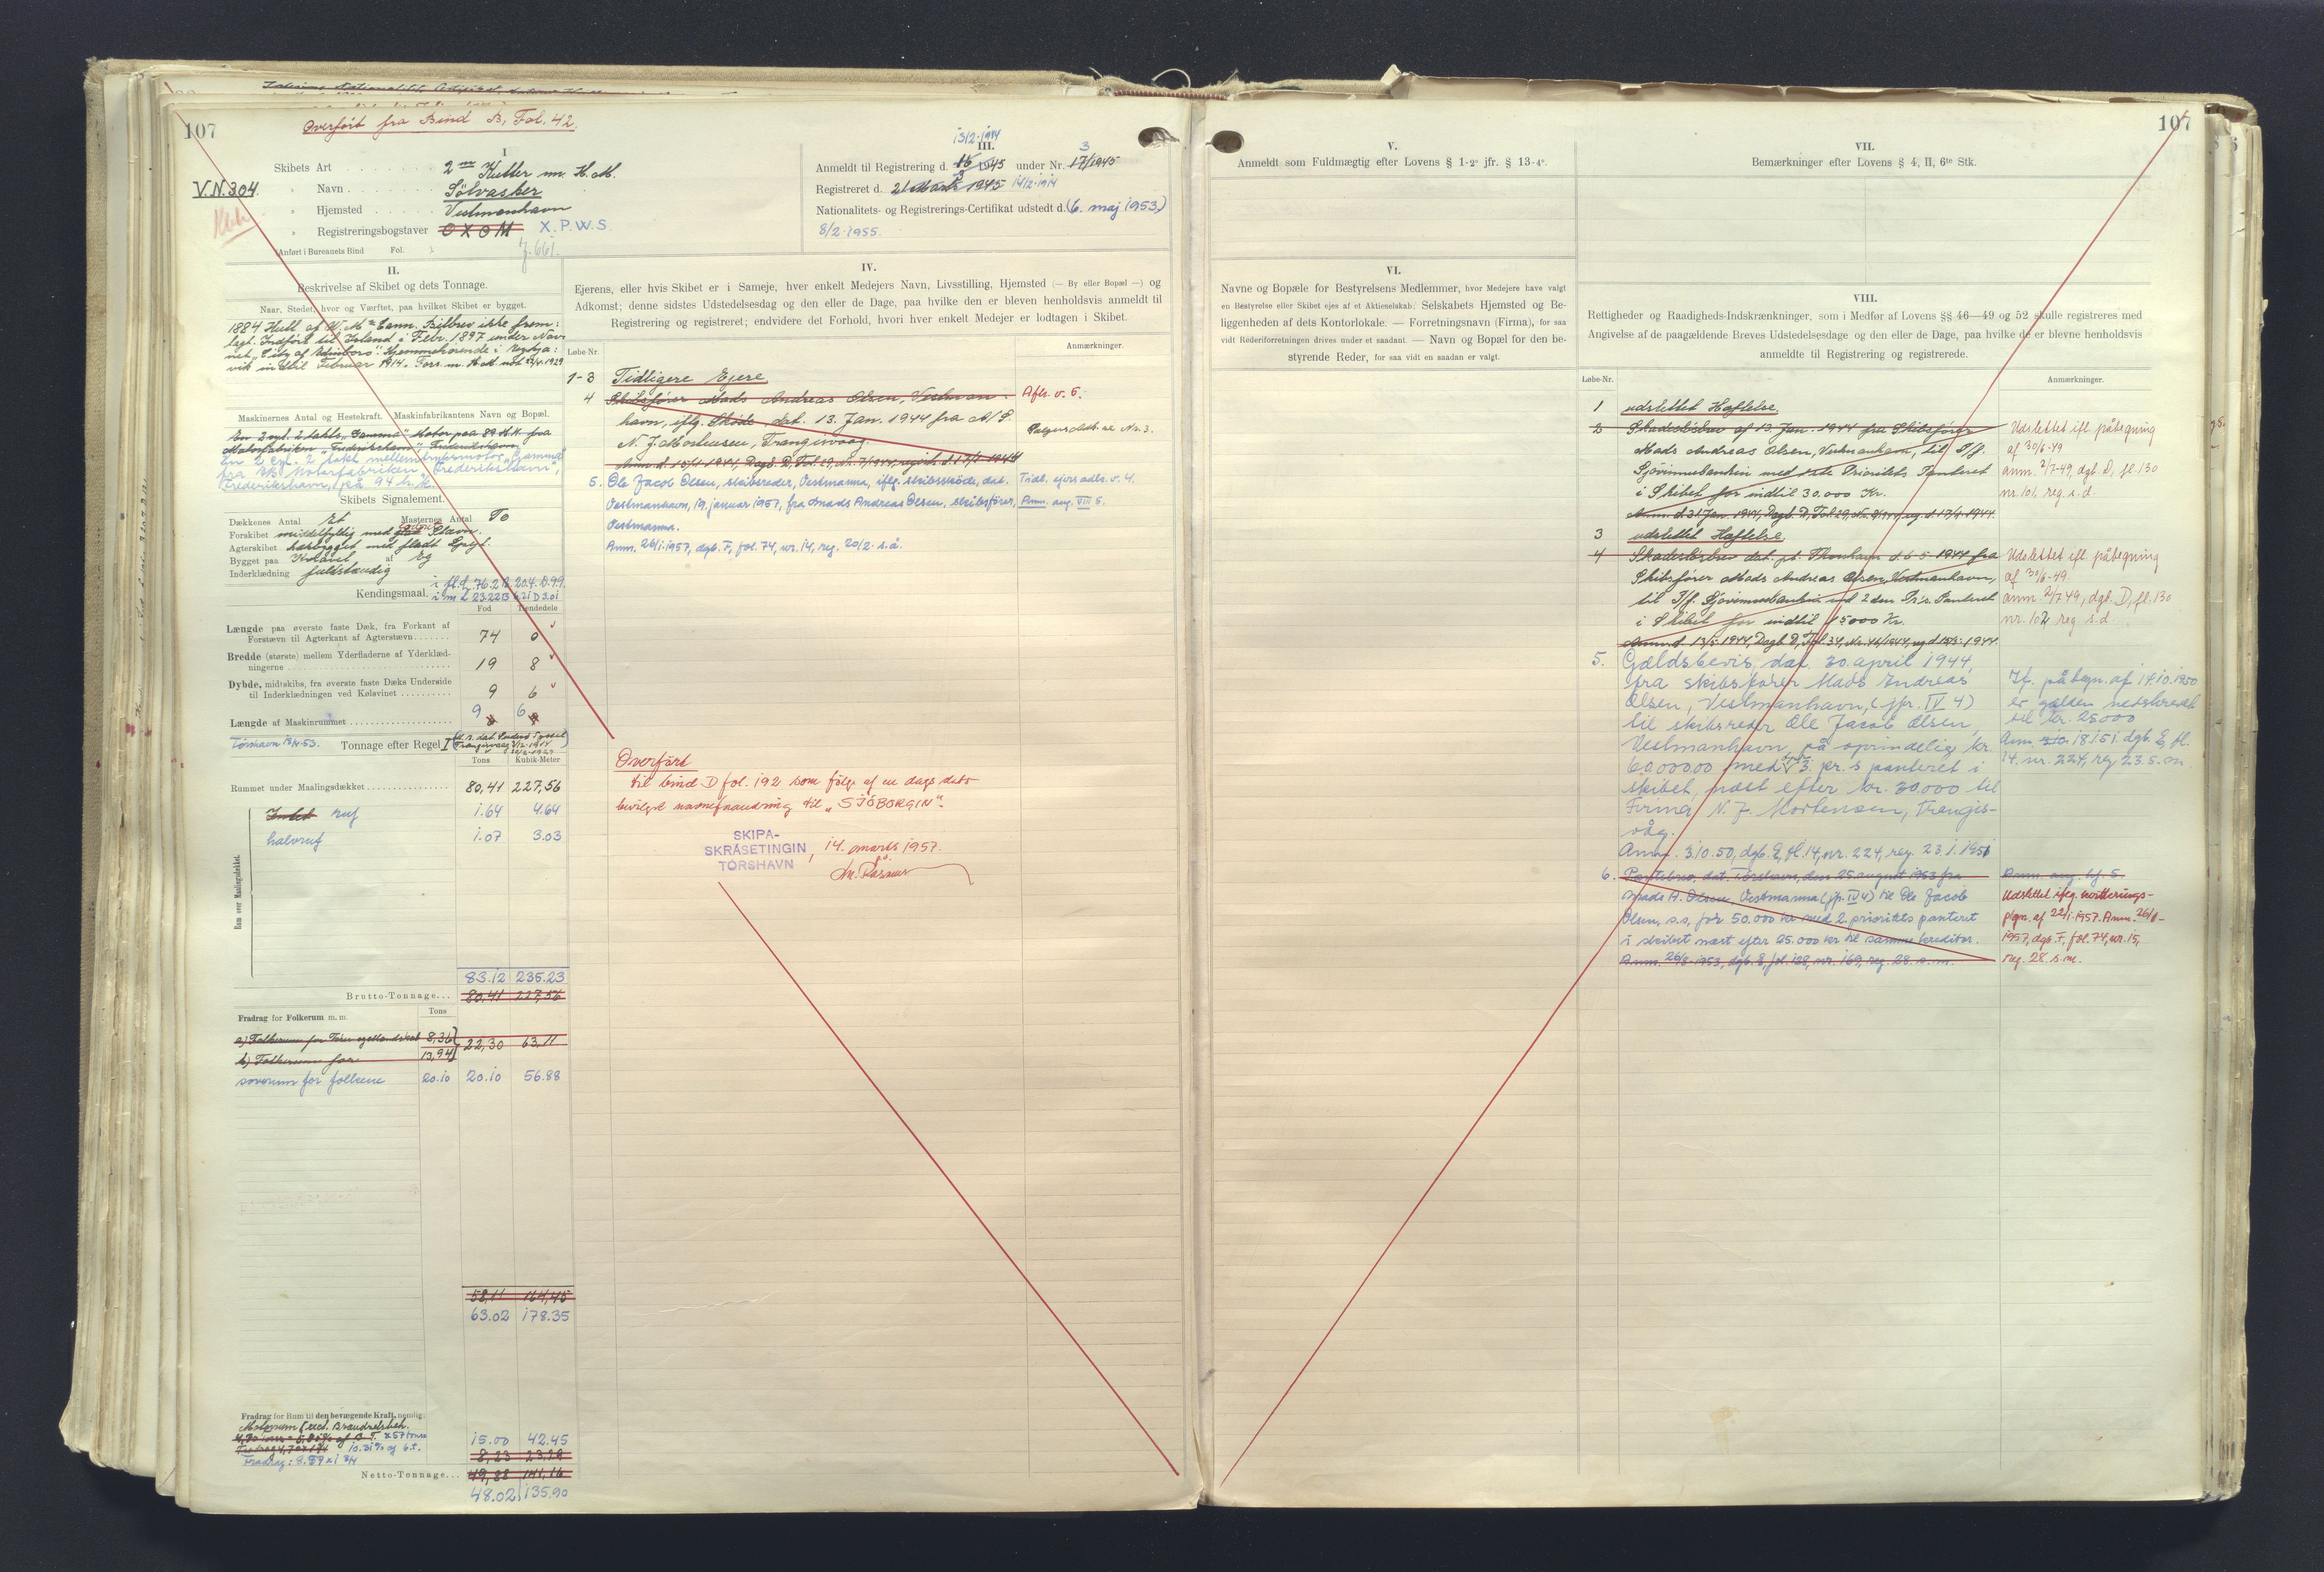 107
Overført fra Bind B, Fol. 42.
I
Skibets Art 2 m Kutter m. H.M.
V.N.304
" Navn Sölvasker
" Hjemsted Vestmanhavn
" Registreringsbogstaver OXOM X.P.W.S.
Anført i Bureauets Bind Fol.
13/2-1914
III.
Anmeldt til Registrering d. 1945 under Nr. 17/1945
3
Registreret d. 21 Marts 1945 14/2-1914
Nationalitets- og Registrerings-Certifikat udstedt d. (6. maj 1953)
8/2-1955.
II.
Beskrivelse af Skibet og dets Tonnage.
Naar, Stedet, hvor og Værftet, paa hvilket Skibet er bygget.
1884 Hull af Bilbrev ikke frem=
lagt. Indført til Island i Febr. 1897 under Nav=
net Hjemmehørende i Reykja=
vik indtil Februar 1914.
Maskinernes Antal og Hestekraft. Maskinfabrikantens Navn og Bopæl.
En 2 cyl. 2 takts "Gamma" Motor paa 89 H.K. fra
Motorfabriken "Frederikshavn" Frederikshavn.
En 2 cyl. 2 takt mellemtryksmotor "Gamma"
fra Motorfabriken "Frederikshavn",
Frederikshavn, på 94 h.k.
Skibets Signalement.
Dækkenes Antal Et Masternes Antal To
Forskibet middelfyldig med Stævn.
Agterskibet med fladt Spejl.
Bygget paa Kravel af Eg
Inderklædning fuldstændig
Kendingsmaal. i fd. L 76.2 B 20.4 D 9.9
i m L 23.22 B 6.21 D 3.01
Fod Tiendedele
Længde paa øverste faste Dæk, fra Forkant af
Forstævn til Agterkant af Agterstævn 74 0
Bredde (største) mellem Yderfladerne af Yderklæd-
ningerne 19 8
Dybde, midtskibs, fra øverste faste Dæks Underside
til Inderklædningen ved Kølsvinet 9 6
Længde af Maskinrummet 9 6
Tórshavn 13/4-53. Tonnage efter Regel I
Tons Kubik-Meter
Rummet under Maalingsdækket 80,41 227,56
Rum over Maalingsdækket.
ruf 1.64 4.64
halvruf 1.07 3.03
83.12 235.23
Brutto-Tonnage... 80,41 227,56
Fradrag for Folkerum m. m. Tons
a) Folkerum for 8,36
22,30 63,11
b) Folkerum for 13,94
soverum for folkene 20.10 20.10 56.88
58,11 164,45
63.02 178.35
Fradrag for Rum til den bevægende Kraft, nemlig:
Motorrum excl. Brændselsbeh.
10.31% af b.t.
15.00 42.45
Fradrag: 8.57 x 1 3/4
8,23 23,29
Netto-Tonnage... 49,88 141,16
48.02 135.90
IV.
Ejerens, eller hvis Skibet er i Sameje, hver enkelt Medejers Navn, Livsstilling, Hjemsted (— By eller Bopæl —) og
Adkomst; denne sidstes Udstedelsesdag og den eller de Dage, paa hvilke den er bleven henholdsvis anmeldt til
Registrering og registreret; endvidere det Forhold, hvori hver enkelt Medejer er lodtagen i Skibet.
Løbe-Nr. Anmærkninger.
1-3 Tidligere Ejere
4 Skibsfører Mads Andreas Olsen, Vestman= Afls. v. 5.
havn, iflg. Skøde dat. 13. Jan. 1944 fra A/S.
N. J. Mortensen, Trangisvaag. Nr. 3.
Anm. d. 15/1-1944, Dagb. D, Fol. 29, Nr. 7/1944, registr. d. 17/1-1944
5. Ole Jacob Olsen, skibsreder, Vestmanna, iflg. skibsskøde, dat. Tidl. ejers adk. v. 4.
Vestmanhavn, 19. januar 1957, fra Mads Andreas Olsen, skibsfører, Anm. ang. VIII 5.
Vestmanna.
Anm. 26/1.1957, dgb. F, fol. 74, nr. 14, reg. 20/2 s.å.
Overført
til bind D fol. 192 som følge af en dags dato
bevilget navneforandring til "SJÓBORGIN".
SKIPA-
SKRÁSETINGIN
TÓRSHAVN
, 14. marts 1957.
V.
Anmeldt som Fuldmægtig efter Lovens § 1-2° jfr. § 13-4°.
VI.
Navne og Bopæle for Bestyrelsens Medlemmer, hvor Medejere have valgt
en Bestyrelse eller Skibet ejes af et Aktieselskab; Selskabets Hjemsted og Be-
liggenheden af dets Kontorlokale. — Forretningsnavn (Firma), for saa
vidt Rederiforretningen drives under et saadant. — Navn og Bopæl for den be-
styrende Reder, for saa vidt en saadan er valgt.
107
VII.
Bemærkninger efter Lovens § 4, II, 6te Stk.
VIII.
Rettigheder og Raadigheds-Indskrænkninger, som i Medfør af Lovens §§ 46—49 og 52 skulle registreres med
Angivelse af de paagældende Breves Udstedelsesdage og den eller de Dage, paa hvilke de er blevne henholdsvis
anmeldte til Registrering og registrerede.
Løbe-Nr. Anmærkninger.
1 udslettet Hæftelse
2 Skadesløsbrev af 13. Jan. 1944 fra Skibsfører Udslettet ifl. påtegning
Mads Andreas Olsen, Vestmanhavn, til I/f. af 30/6-49
Sjóvinnubankin med 1ste Prioritets Panteret anm. 2/7-49, dgb. D, fl. 130
i Skibet for indtil 30.000 Kr. nr. 101, reg. s.d.
Anm. d. 31 Jan 1944, Dagb. D, Fol 29,
3 udslettet Hæftelse
4 Skadesløsbrev dat. Thorshavn d. 6-5 1944 fra Udslettet efl. påtegning
Skibsfører Mads Andreas Olsen, Vestmanhavn, af 30/6-49.
til I/f. Sjóvinnubankin med 2den Pr's. Panteret anm. 2/7 49, dgl. D, fl. 130
i Skibet for indtil 15000 Kr. nr. 102 reg s.d.
Anm. d. 13/5-1944, Dagb. D, Fol 34,
5. Gældsbevis, dat. 30. april 1944,
fra skibsfører Mads Andreas If. påtegn. af 14.10.1950
Olsen, Vestmanhavn, (jfr. IV 4) er gælden nedskrevet
til skibsreder Ole Jacob Olsen, til kr. 25000
Vestmanhavn, på oprindelig kr. Anm. 3.10 18.1.51 dgb. E, fl.
60.000.00 med 3. pr.s panteret i 14, nr. 224, reg 23. s.m.
skibet, næst efter kr. 30.000 til
Firma N. J. Mortensen, Trangis-
våg.
Anm. 3.10.50, dgb. E, fl. 14, nr. 224, reg. 23.1.1951
6. Pantebrev, dat. Tórshavn, den 25. august 1953 fra Anm. ang. bf. 5
Mads A. Olsen, Vestmanna (jfr. IV 4) til Ole Jacob Udslettet iflg. kvitterings-
Olsen, s.s., for 50.000 kr med 2. prioritets panteret ptgn. af 22/1-1957. Anm. 26/1-
i skibet næst efter 25.000 kr til samme kreditor. 1957, dgb. F, fol. 74, nr. 15,
Anm. 26/8-1953, dgb. E, fol. 128, nr. 169, reg. 28. s.m. reg. 28 s.m.